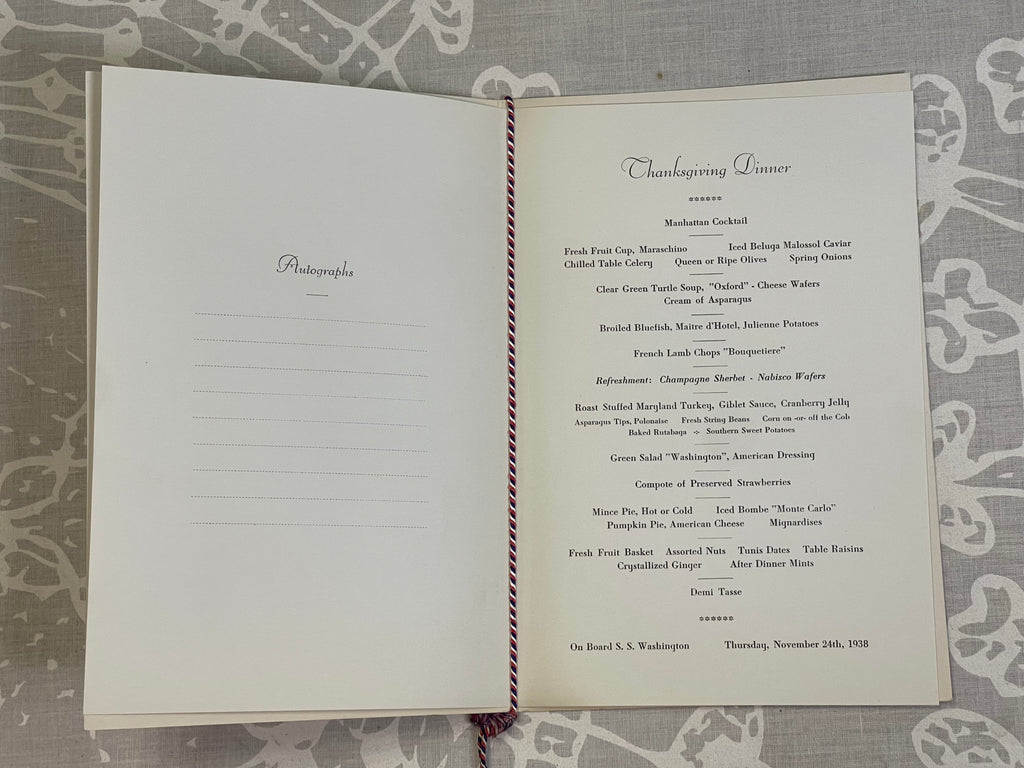 Autographs
Thanksgiving Dinner
******
Manhattan Cocktail
Fresh Fruit Cup, Maraschino Iced Beluga Malossol Caviar
Chilled Table Celery Queen or Ripe Olives Spring Onions
Clear Green Turtle Soup, "Oxford" - Cheese Wafers
Cream of Asparagus
Broiled Bluefish, Maitre d'Hotel, Julienne Potatoes
French Lamb Chops "Bouquetiere"
Refreshment: Champagne Sherbet - Nabisco Wafers
Roast Stuffed Maryland Turkey, Giblet Sauce, Cranberry Jelly
Asparagus Tips, Polonaise Fresh String Beans Corn on -or- off the Cob
Baked Rutabaga -:- Southern Sweet Potatoes
Green Salad "Washington", American Dressing
Compote of Preserved Strawberries
Mince Pie, Hot or Cold Iced Bombe "Monte Carlo"
Pumpkin Pie, American Cheese Mignardises
Fresh Fruit Basket Assorted Nuts Tunis Dates Table Raisins
Crystallized Ginger After Dinner Mints
Demi Tasse
******
On Board S. S. Washington Thursday, November 24th, 1938